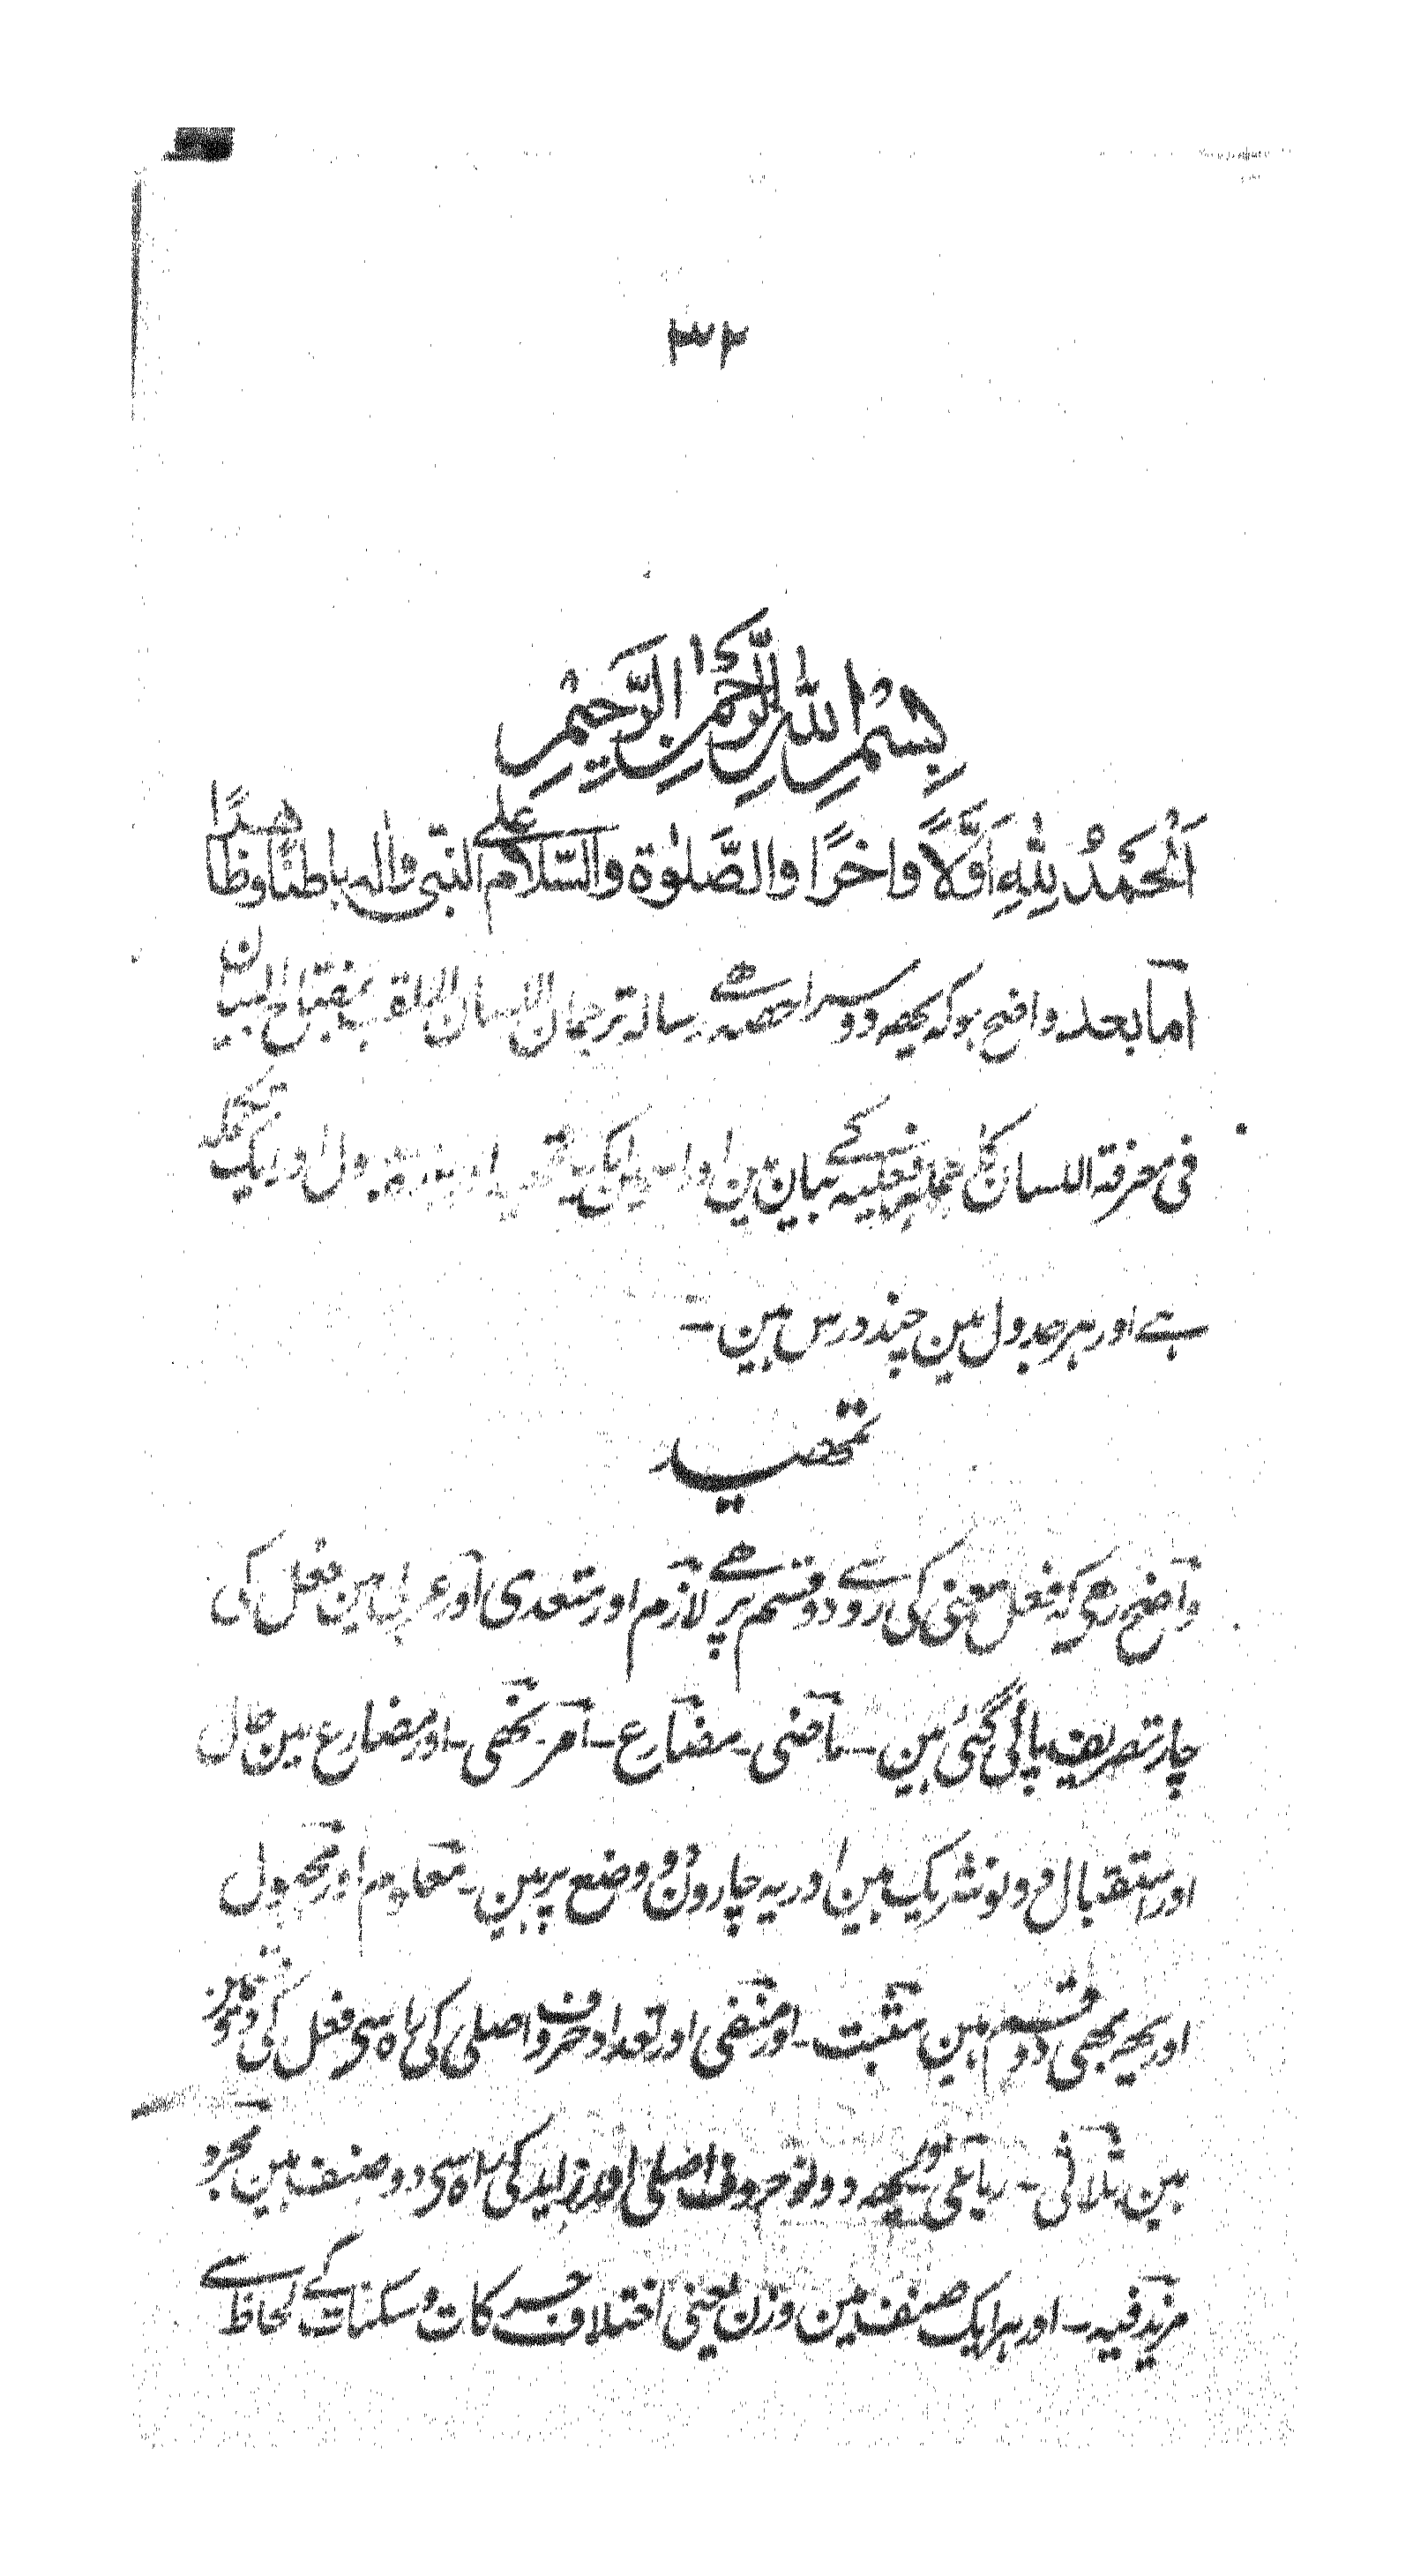 ۳۲
بِسْمِ اللّٰہِ الرَّحْمٰنِ الرَّحِیْمِ
اَلْحَمْدُ لِلّٰہِ اَوَّلًا وَاٰخِرًا والصَّلوٰۃ والسَّلام علی النبی واٰلہ باطنًا وظاھرًا
اما بعد واضح ہو کہ یھہ دوسرا حصہ ھے رسالہ ترجمان اللسان الملقب بمفتاح البیان
فی معرفۃ اللسان کا جملہ فعلیہ کے بیان مین اور اسمین ایک تمھید اور جدول اور ایک تکملہ
ہے اور ہر جدول مین چند درس ہین ۔
تمھید
واضح رھی کہ فعل معنی کی رو سے دو قسم پر ھے لازم اور متعدی اور عربی مین فعل کی
چار تصریف پائی گئی ہین ۔ ماضی ۔ مضارع ۔ امر ۔ نھی ۔ اور مضارع مین حال
اور استقبال دونو شریک ہین اور یہ چارون دو وضع پر ہین ۔ معلوم اور مجہول
اور یھہ بھی دو قسم ہین مثبت ۔ اور منفی اور تعداد حروف اصلی کی راہ سی فعل کی دو قسمین
ہین ثلاثی ۔ رباعی اور یھہ دونو حروف اصلی اور زاید کی راہ سی دو صنف ہین مجرد
مزید فیہ ۔ اور ہر ایک صنف مین وزن یعنی اختلاف حرکات و سکنات کے لحاظ سے